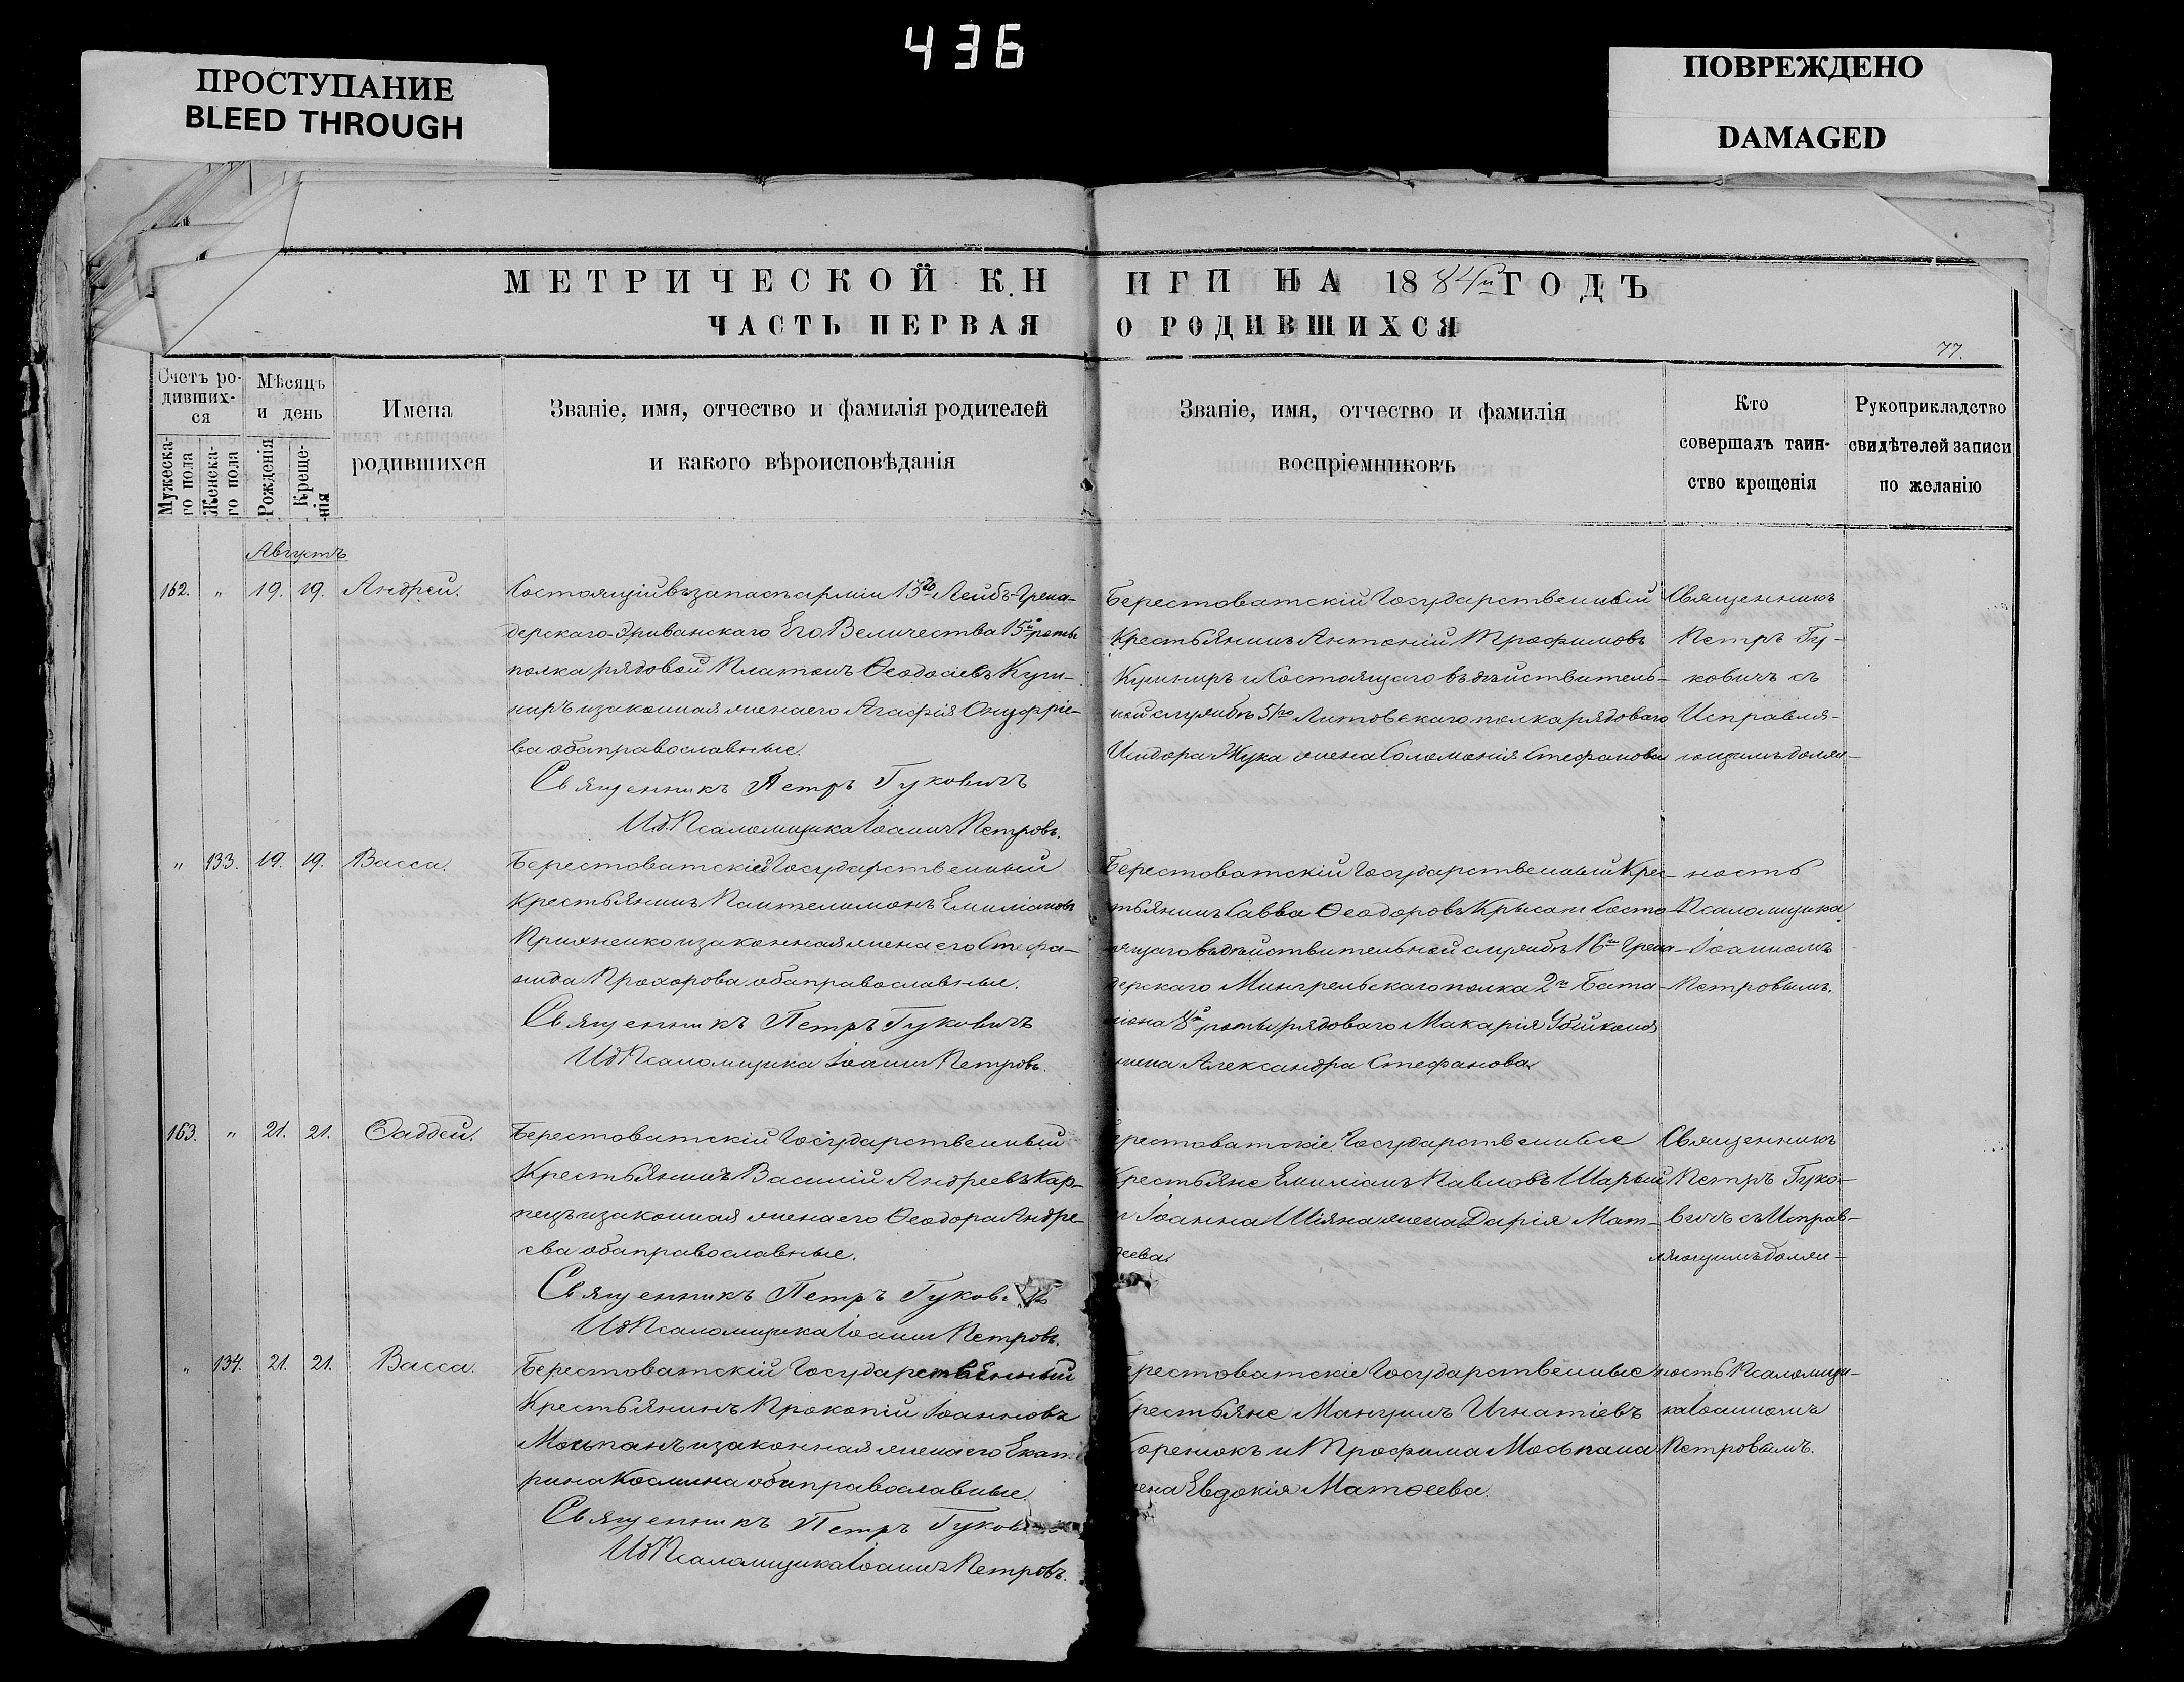 436
ПРОСТУПАНИЕ
BLEED THROUGH
ПОВРЕЖДЕНО
DAMAGED
МЕТРИЧЕСКОЙ КНИГИ НА 1884й ГОДЪ
ЧАСТЬ ПЕРВАЯ О РОДИВШИХСЯ
77.
Счетъ ро-
дивших-
ся
Мужеска-
го пола
Женска-
го пола
Мѣсяцъ
и день
Рожденія
Креще-
нія
Имена
родившихся
Званіе, имя, отчество и фамилія родителей
и какого вѣроисповѣданія
Званіе, имя, отчество и фамилія
воспріемниковъ
Кто
совершалъ таин-
ство крещенія
Рукоприкладство
свидѣтелей записи
по желанію
Августъ
162. " 19. 19. Андрей.
Состоящій въ запасъ арміи 13го Лейбъ-Грена-
дерскаго-Эриванскаго Его Величества 15й роты
полка рядовой Платонъ Ѳеодосіевъ Куш-
ниръ и законная жена его Агафія Онуфріе-
ва оба православные.
Священникъ Петръ Гуковичъ
И.д. Псаломщика Іоаннъ Петровъ.
Берестоватскій Государственный
Крестьянинъ Антоній Трофимовъ
Кушниръ и Состоящаго въ дѣйствитель-
ной службѣ 51го Литовскаго полка рядоваго
Исидора Жука жена Соломонія Стефанова
Священникъ
Петръ Гу-
ковичъ съ
Исправля-
ющимъ долж-
" 133. 19. 19. Васса.
Берестоватскій Государственный
Крестьянинъ Пантелимонъ Емиліановъ
и законная жена его Стефа-
нида Прохорова оба православные.
Священникъ Петръ Гуковичъ
Ид Псаломщика Іоаннъ Петровъ.
Берестоватскій Государственный Кре-
стьянинъ Савва Ѳеодоровъ и Состо-
ящаго въ дѣйствительной службѣ 16го Грена-
дерскаго Мингрельскаго полка 2го Бата-
ліона 8й роты рядоваго Макарія
жена Александра Стефанова
ность
Псаломщика
Іоанномъ
Петровымъ.
163. " 21. 21. Ѳаддей.
Берестоватскій Государственный
Крестьянинъ Василій Андреевъ Кар-
пецъ и законная жена его Ѳеодора Андре-
ева оба православные.
Священникъ Петръ Гукович
Ид Псаломщика Іоаннъ Петровъ.
ерестоватскіе Государственные
Крестьяне Емиліанъ Павловъ Шарый
и Іоанна Шіяна жена Дарія Мат-
ѳеева
Священникъ
Петръ Гуко-
вичъ съ Исправ-
ляющимъ долж-
" 134. 21. 21. Васса.
Берестоватскій Государственный
Крестьянинъ Прокопій Іоанновъ
Моспанъ и законная жена его Екат
рина Космина оба православные.
Священникъ Петръ Гукови
Ид Псаломщика Іоаннъ Петровъ.
ерестоватскіе Государственные
рестьяне Мануилъ Игнатіевъ
оренюкъ и Трофима Моспана
жена Евдокія Матѳеева.
ность Псаломщи-
ка Іоанномъ
Петровымъ.